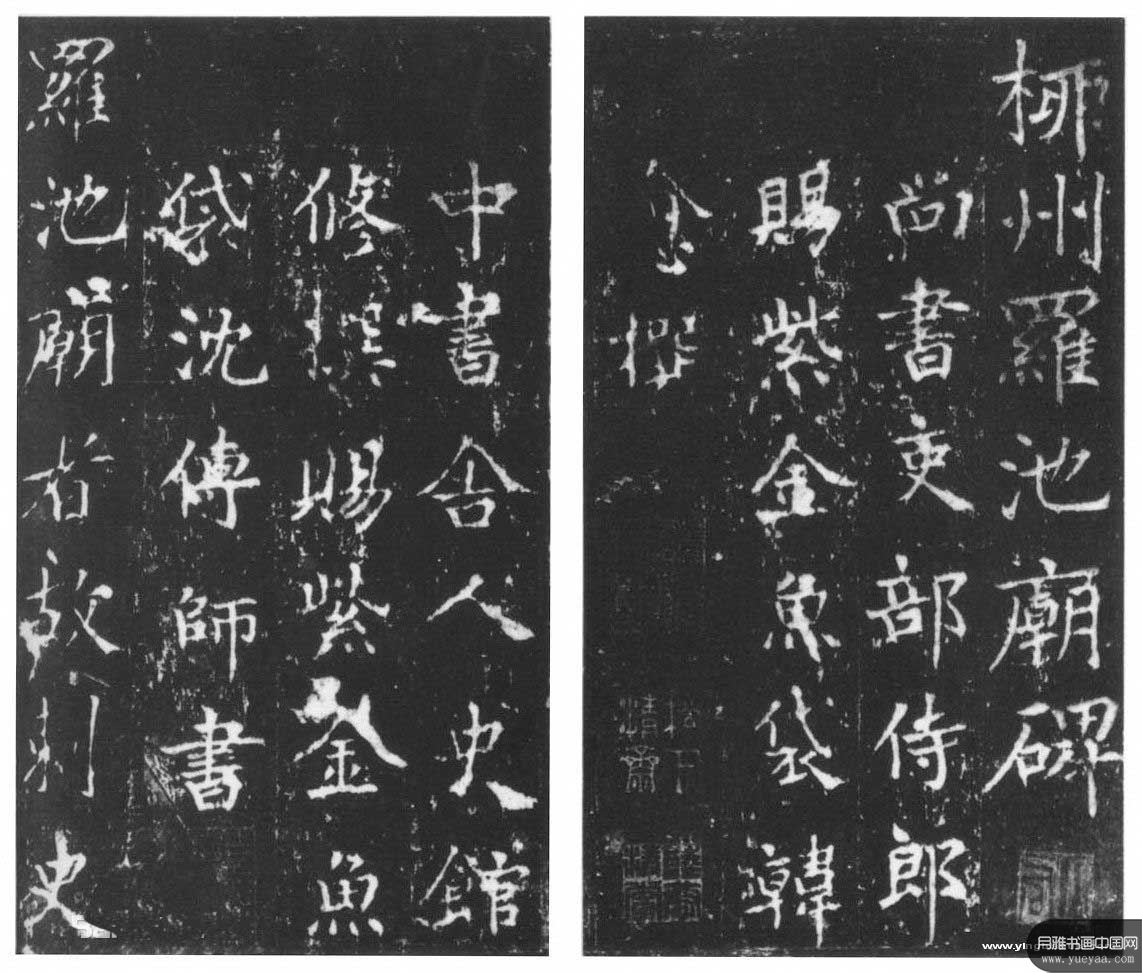 柳州羅池廟碑
尚書吏部侍郎
賜紫金魚袋韓
愈撰
中書舍人史館
修撰賜紫金魚
袋沈傳師書
羅池廟者故刺史
www.yueyaa.com
月雅书画中国网